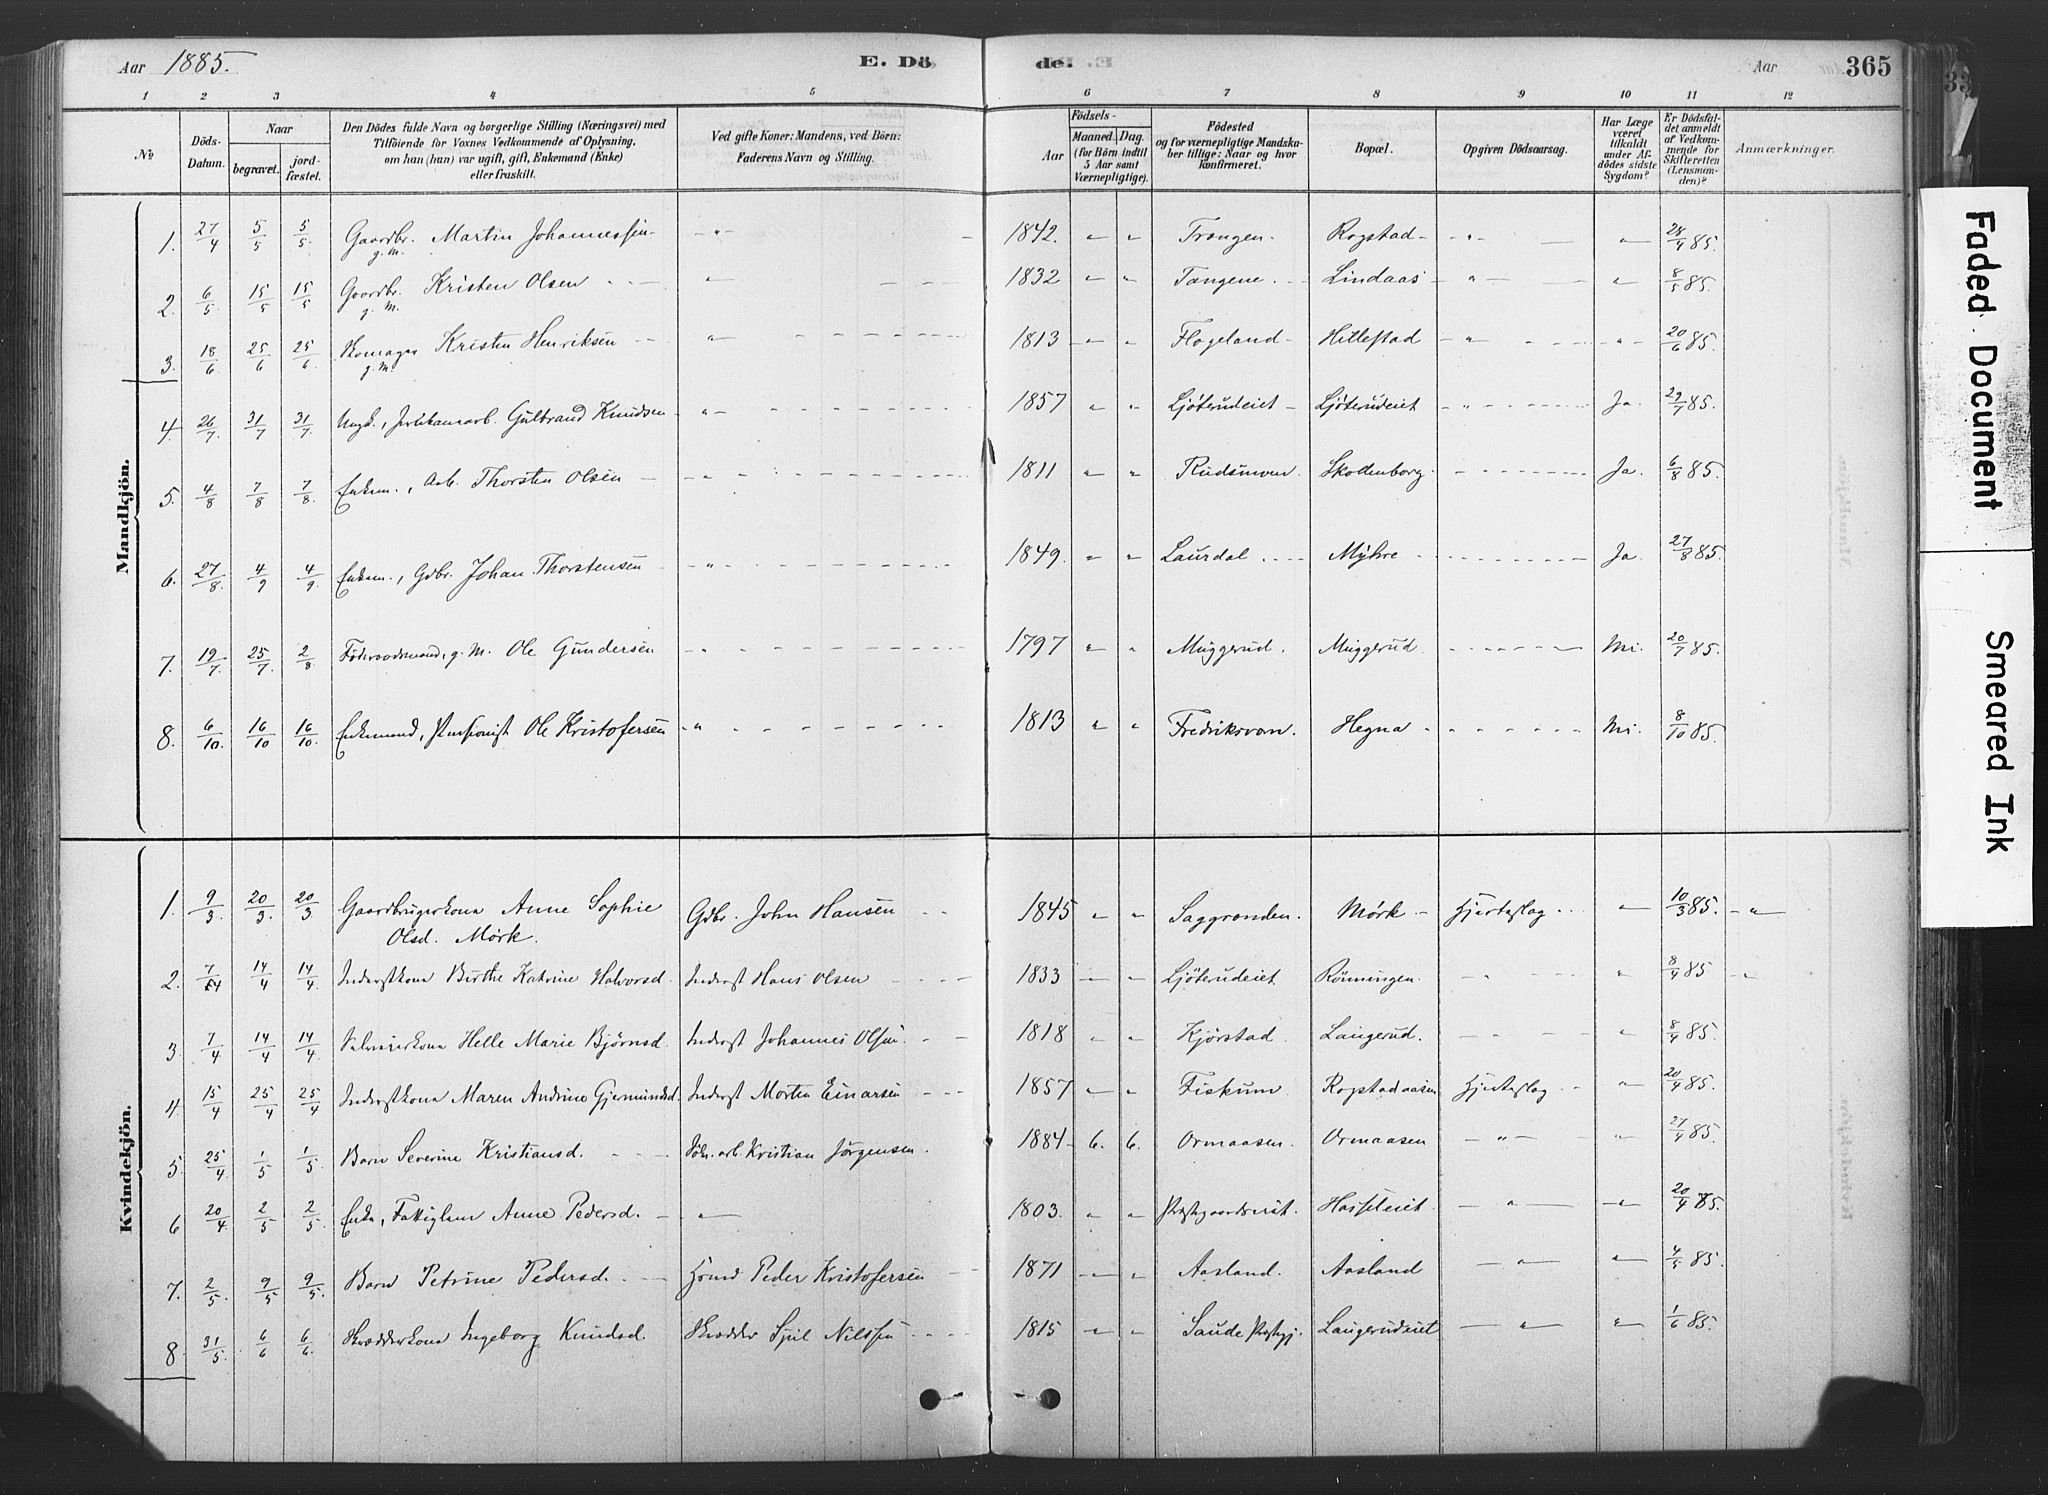 Aar 1885. E. Dö de. Aar 365
1 2 3 4 5 6 7 8 9 10 11 12
No Döds-Datum. Naar begravet. jord-fæstet. Den Dödes fulde Navn og borgerlige Stilling (Næringsvei) med Tilföiende for Voxnes Vedkommende af Oplysning, om han (hun) var ugift, gift, Enkemand (Enke) eller fraskilt. Ved gifte Koner: Mandens, ved Börn: Faderens Navn og Stilling. Födsels- Aar Maaned. Dag. (for Börn indtil 5 Aar samt Værnepligtige). Födested og for værnepligtige Mandska-ber tillige: Naar og hvor konfirmeret. Bopæl. Opgiven Dödsaarsag. Har Læge været tilkaldt under Af-dödes sidste Sygdom? Er Dödsfal-det anmeldt af Vedkom-mende for Skifteretten (Lensman-den)? Anmærkninger.
Mandkjön.
1. 27/4 5/5 5/5 Gaardbr. g. M. Martin Johannessen - " - 1842. " " Trangen - Rogstad - " - " 28/4 85.
2. 6/5 15/5 15/5 Gaardbr. g. M. Kristen Olsen " 1832 " " Tangene. Lindaas - " - " 8/5 85.
3. 18/6 25/6 25/6 Skomager g. M. Kristen Henriksen " 1813 " " Flageland - Hillestad - " - " 20/6 85.
4. 26/7 31/7 31/7 Ungk., Gulbrand Knudsen - " - 1857 " " Ljøterudeiet - Ljøterudeiet " Ja. 29/7 85.
5. 4/8 7/8 7/8 Enkem., Arb. Thorsten Olsen - " - 1811 " " Rudsmoen Skollenborg - Ja. 6/8 85.
6. 27/8 4/9 4/9 Enkem., Gdbr. Johan Thorstensen - " - 1849. " " Laurdal Myhre - Ja. 27/8 85.
7. 19/7 25/7 2/8 Föderaadsmand, g. M. Ole Gundersen - " - 1797 " " Muggerud. Muggerud. - Nei. 20/7 85.
8. 6/10 16/10 16/10 Enkemand, Pensionist Ole Kristofersen " 1813 " " Fredriksværn. Hegna - Nei. 8/10 85.
Kvindekjön.
1. 9/3 20/3 20/3 Gaardbrugerkona Anne Sophie Gdbr. John Hansen 1845 " " Saggrenden. Mørk - Hjerteslag " 10/3 85. - " -
Olsd. Mørk.
2. 7/4 14/4 14/4 Inderstkona Birthe Katrine Halvorsd. Inderst Hans Olsen 1833 " " Ljøterudeiet Rönningen. " " 8/4 85 "
3. 7/4 14/4 14/4 Helle Marie Bjørnsd. Inderst Johannes Olsen. 1818 " " Kjörstad Laugerud. " " 8/4 85.
4. 15/4 25/4 25/4 Inderstkona Maren Andrine Gjermundsd. Inderst Morten Einarsen 1857 " " Fiskum Rogstadaasen Hjerteslag " 20/4 85.
5. 25/4 1/5 1/5 Barn Severine Kristiansd. arb. Kristian Jørgensen. 1884 6. 6. Ormaasen. Ormaasen " " 27/4 85.
6 20/4 2/5 2/5 Enke, Fattiglem Anne Pedersd. " 1803. " " Prestgaardseiet. Hasseleiet. " " 20/4 85.
7. 2/5 9/5 9/5 Barn Petrine Pedersd. Peder Kristofersen 1871 " " Aasland. Aasland " " 4/5 85.
8 31/5 6/6 6/6 Skrædderkona Ingeborg Knudsd. Skrædder Nilssen 1815 " " Saude Prestgj. Laugerudeiet " " 1/6 85.
Faded Document
Smeared Ink